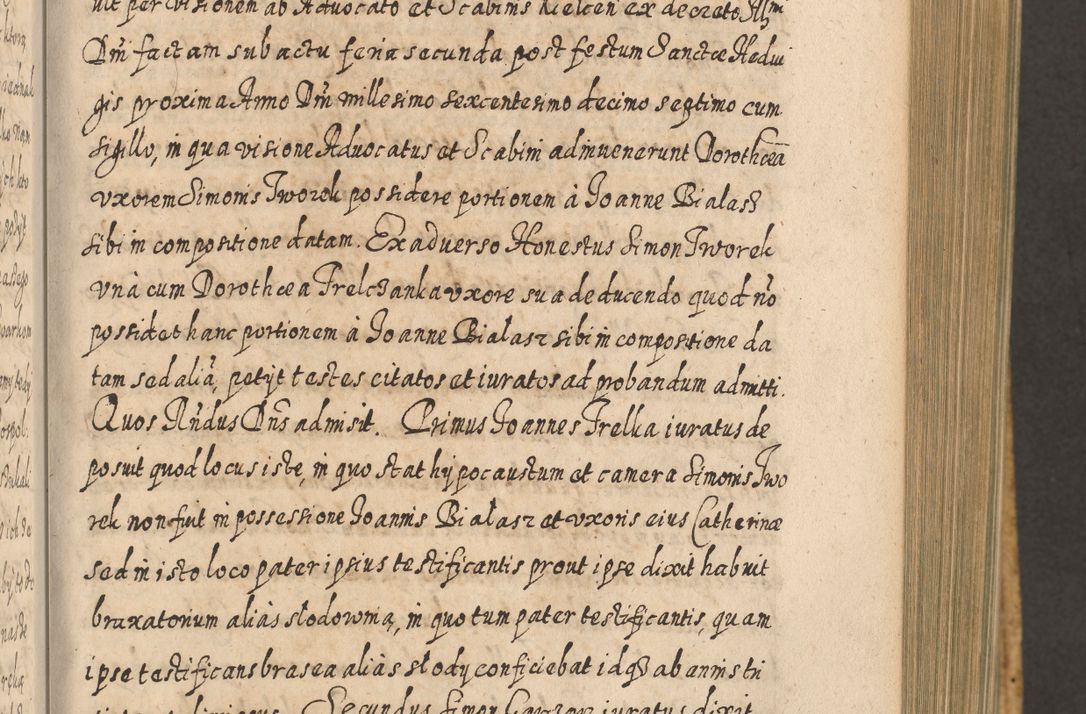 uit per visionem ab Advocato et Scabinis Kielcen ex decreto Illmi
Dni factam sub actu feria secunda post festum Sanctæ Hedui
gis proxima Anno Dni millesimo sexcentesimo decimo septimo cum
sigillo, in qua visione Advocatus et Scabini adinuenerunt Dorothæã
vxorem Simonis Tworek possidere portionem à Joanne Bialasz
sibi in compositione datam. Ex aduerso Honestus Simon Tworek
vnà cum Dorothæa Trelczanka vxore sua deducendo quod nõ
possidet hanc portionem à Joanne Bialasz sibi in compositione da
tam sed aliã, petijt testes citatos et iuratos ad probandum admitti.
Quos Rndus Dns admisit. Primus Joannes Trelka iuratus de
posuit quod locus iste, in quo stat hypocaustum et camera Simonis Two
rek non fuit in possessione Joannis Białasz et vxoris eius Catherinæ
sed in isto loco pater ipsius testificantis prout ipse dixit habuit
braxatorium aliàs słodownią, in quo tum pater testificantis, quam
ipse testificans brasea aliàs słody conficiebat idq3 ab annis tri
Secundus Simon iuratus dixit